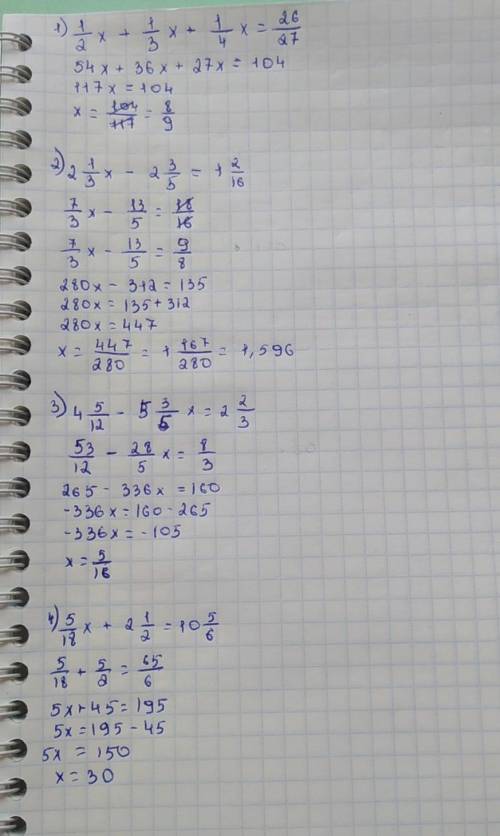 1) 1/2 x + 1/3 x + 1/4 x = 26/27
54x + 36x + 27x = 104
117x = 104
x = 104/117 = 8/9
2) 2 1/3 x - 2 3/5 = 1 2/16
7/3 x - 13/5 = 18/16
7/3 x - 13/5 = 9/8
280x - 312 = 135
280x = 135 + 312
280x = 447
x = 447/280 = 1 167/280 = 1,596
3) 4 5/12 - 5 3/5 x = 2 2/3
53/12 - 28/5 x = 8/3
265 - 336x = 160
-336x = 160 - 265
-336x = -105
x = 5/16
4) 5/18 x + 2 1/2 = 10 5/6
5/18 + 5/2 = 65/6
5x + 45 = 195
5x = 195 - 45
5x = 150
x = 30